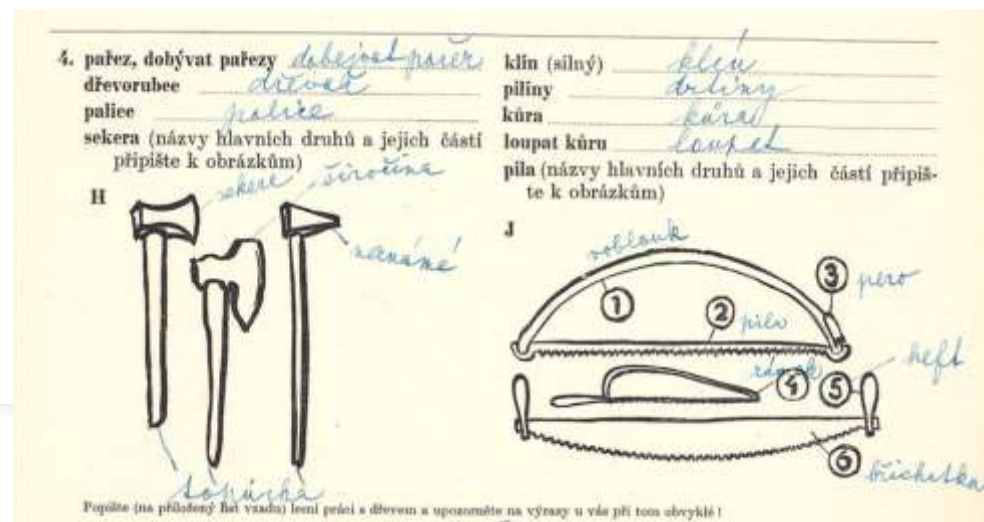 4. pařez, dobývat pařezy dobejvat pařez
dřevorubec dřevař
palice palice
sekera (názvy hlavních druhů a jejich částí
připište k obrázkům)
H
sekera
širočina
neznámé
topůrka
klín (silný) klín
piliny drtiny
kůra kůra
loupat kůru loupat
pila (názvy hlavních druhů a jejich částí připiš-
te k obrázkům)
J
voblouk
1
2
pila
3
pero
4
5
heft
6
břichatka
Popište (na přiložený list vzadu) lesní práci s dřevem a upozorněte na výrazy u vás při tom obvyklé!